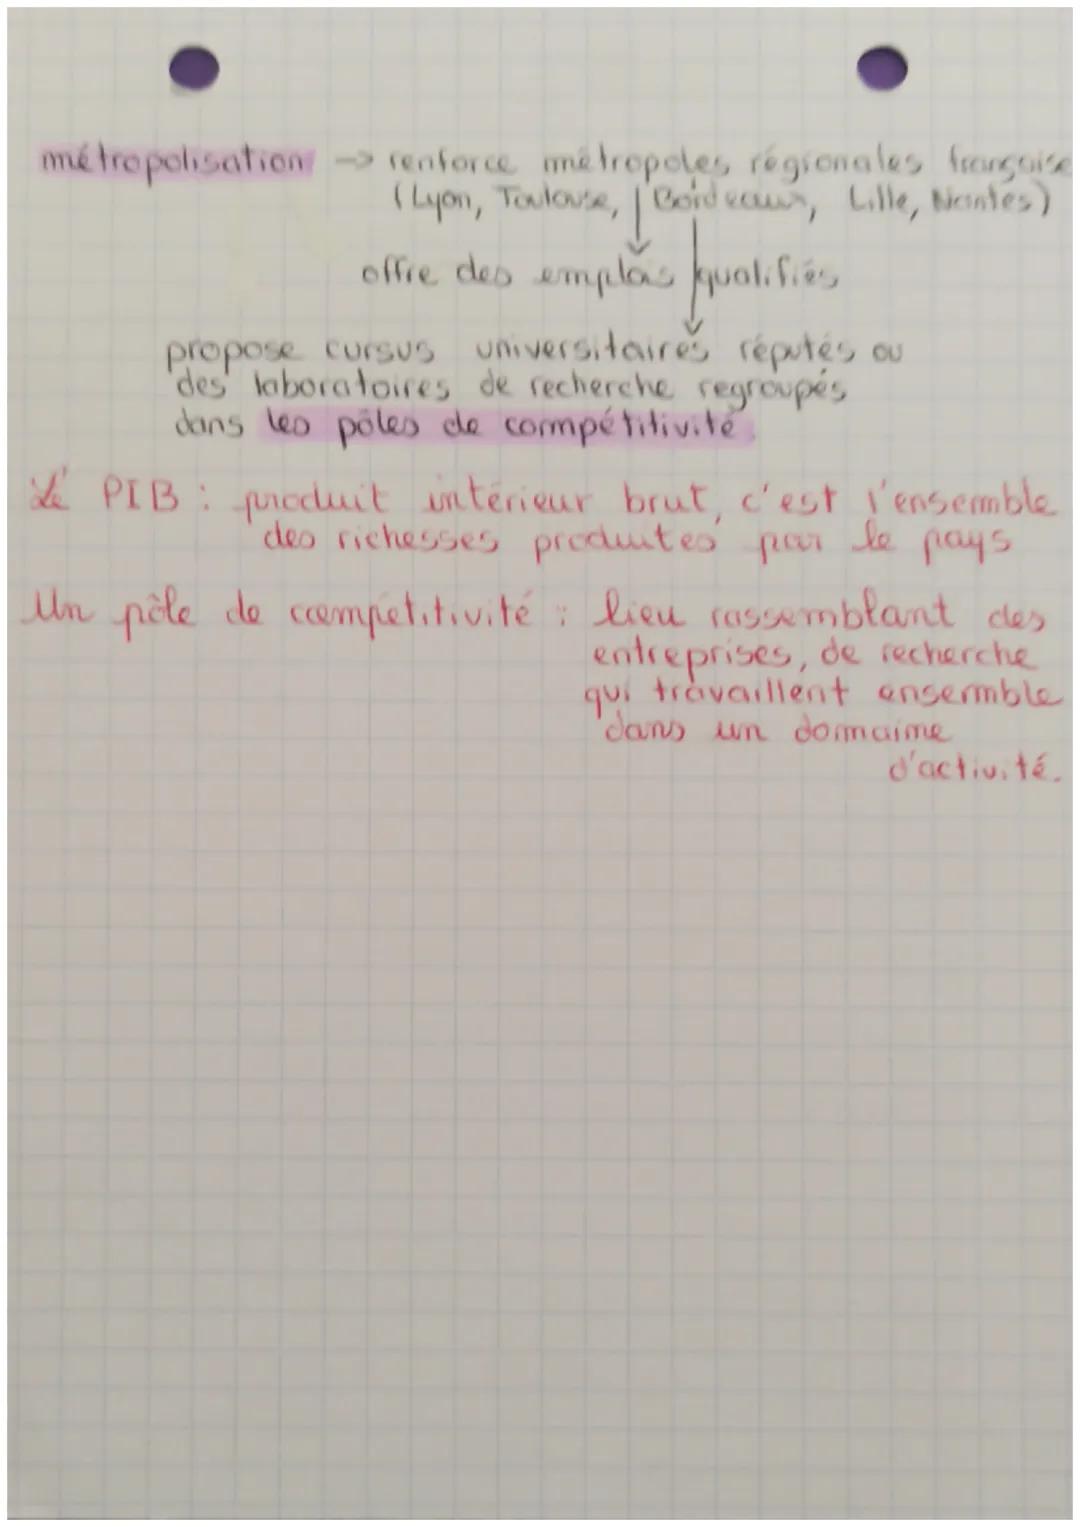 métropolisation → renforce métropoles régionales française
(Lyon, Toulouse, Bordeaux, Lille, Nantes)
offre des emplois qualifiés
propose cursus universitaires réputés ou
des laboratoires de recherche regroupés
dans les pôles de compétitivité.
Le PIB : produit intérieur brut, c'est l'ensemble
des richesses produites par le pays
Un pôle de compétitivité : lieu rassemblant des
entreprises, de recherche
qui travaillent ensemble
dans un domaine
d'activité.